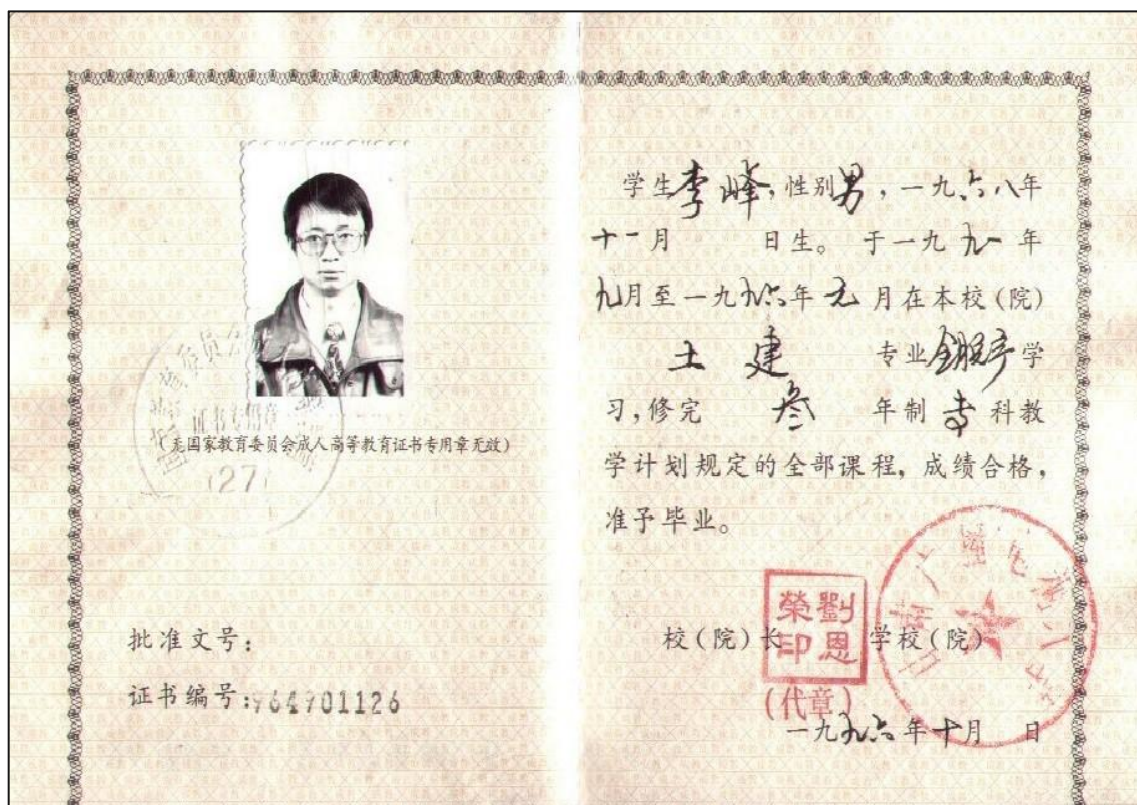 (无国家教育委员会成人高等教育证书专用章无效)
证书专用章
(27)
批准文号:
证书编号:964901126
学生李峰,性别男,一九六八年
十一月 日生。于一九九一年
九月至一九九六年元月在本校(院)
土建 专业 学
习,修完 叁 年制专科教
学计划规定的全部课程,成绩合格,
准予毕业。
校(院)长 学校(院)
劉恩榮印
(代章)
一九九六年十月 日